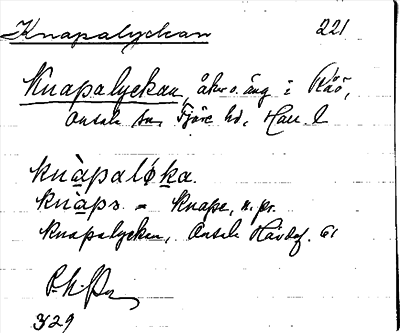 Knapalyckan 221
Knapalyckan, åker o. äng i Råö,
Onsala sn, Fjäre hd, Hall. l
knàpaló̱ka.
knàps. = Knape, n. pr.
Knapalyckan, Onsala Hävdef. 61
329